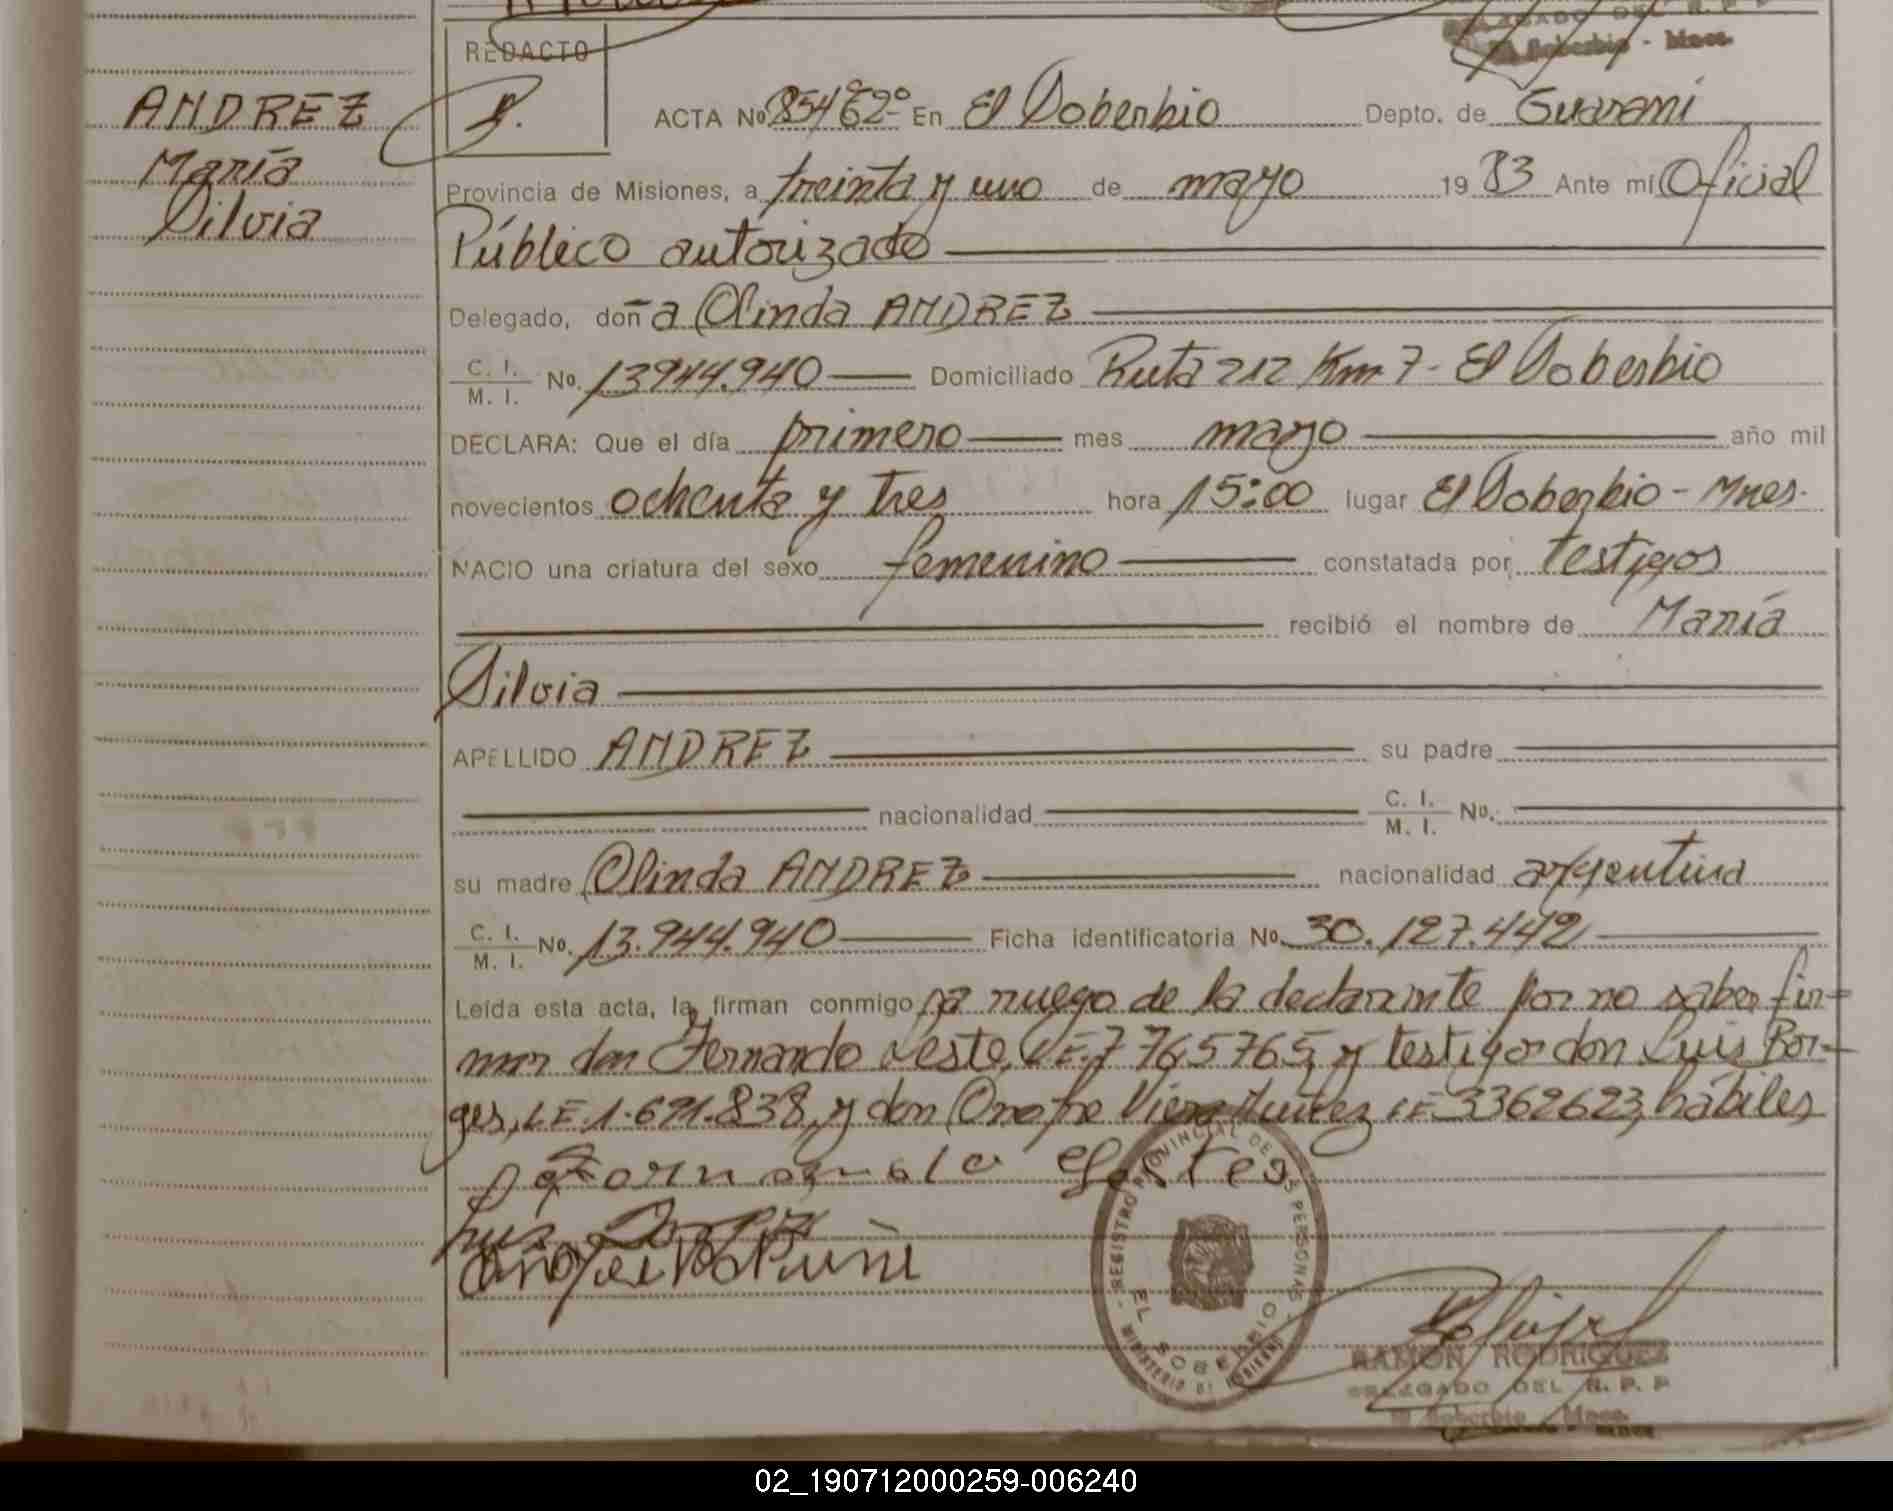 REDACTO
ANDREZ
María
Silvia
ACTA No 854 62º En El Soberbio Depto. de Guaraní
Provincia de Misiones, a treinta y uno de mayo 19 83 Ante mí Oficial
Público autorizado
Delegado, doña Olinda ANDREZ
C. I. / M. I. No. 13944.940 Domiciliado Ruta 212 Km 7 - El Soberbio
DECLARA: Que el día primero mes mayo año mil
novecientos ochenta y tres hora 15:00 lugar El Soberbio - Mnes.
NACIO una criatura del sexo femenino constatada por testigos
recibió el nombre de María
Silvia
APELLIDO ANDREZ su padre
nacionalidad C. I. / M. I. No.
su madre Olinda ANDREZ nacionalidad argentina
C. I. / M. I. No. 13.944.940 Ficha identificatoria No. 30.127.442
Leída esta acta, la firman conmigo a ruego de la declarante por no saber fir-
mar don Fernando Leste, LE. 7765765, y testigos don Luis Bor-
ges, LE 1.691.838, y don Onofre LE 3362623, hábiles
Luis
REGISTRO PROVINCIAL DE LAS PERSONAS
EL SOBERBIO
MINISTERIO DE GOBIERNO
RAMON RODRIGUEZ
DELEGADO DEL R. P. P
El Soberbio - Mnes.
DELEGADO DEL R. P. P
El Soberbio - Mnes.
02_190712000259-006240